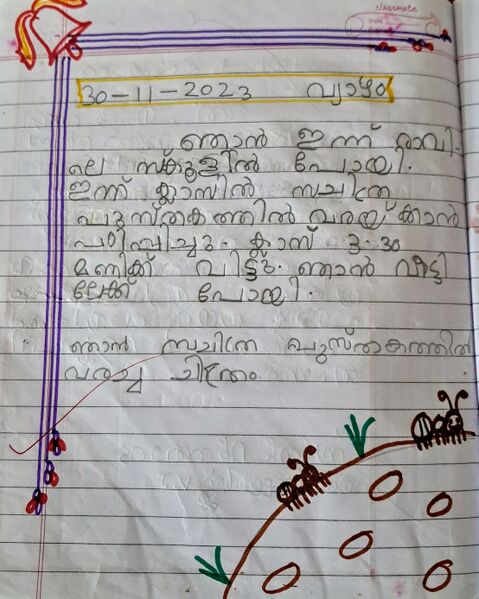 classmate
30-11-2023 വ്യാഴം
ഞാൻ ഇന്ന് രാവി-
ലെ സ്കൂളിൽ പോയി.
ഇന്ന് ക്ലാസിൽ സചിത്ര
പുസ്തകത്തിൽ വരയ്ക്കാൻ
പഠിപ്പിച്ചു. ക്ലാസ് 3.30
മണിക്ക് വിട്ടു. ഞാൻ വീട്ടി
ലേക്ക് പോയി.
ഞാൻ സചിത്ര പുസ്തകത്തിൽ
വരച്ച ചിത്രം